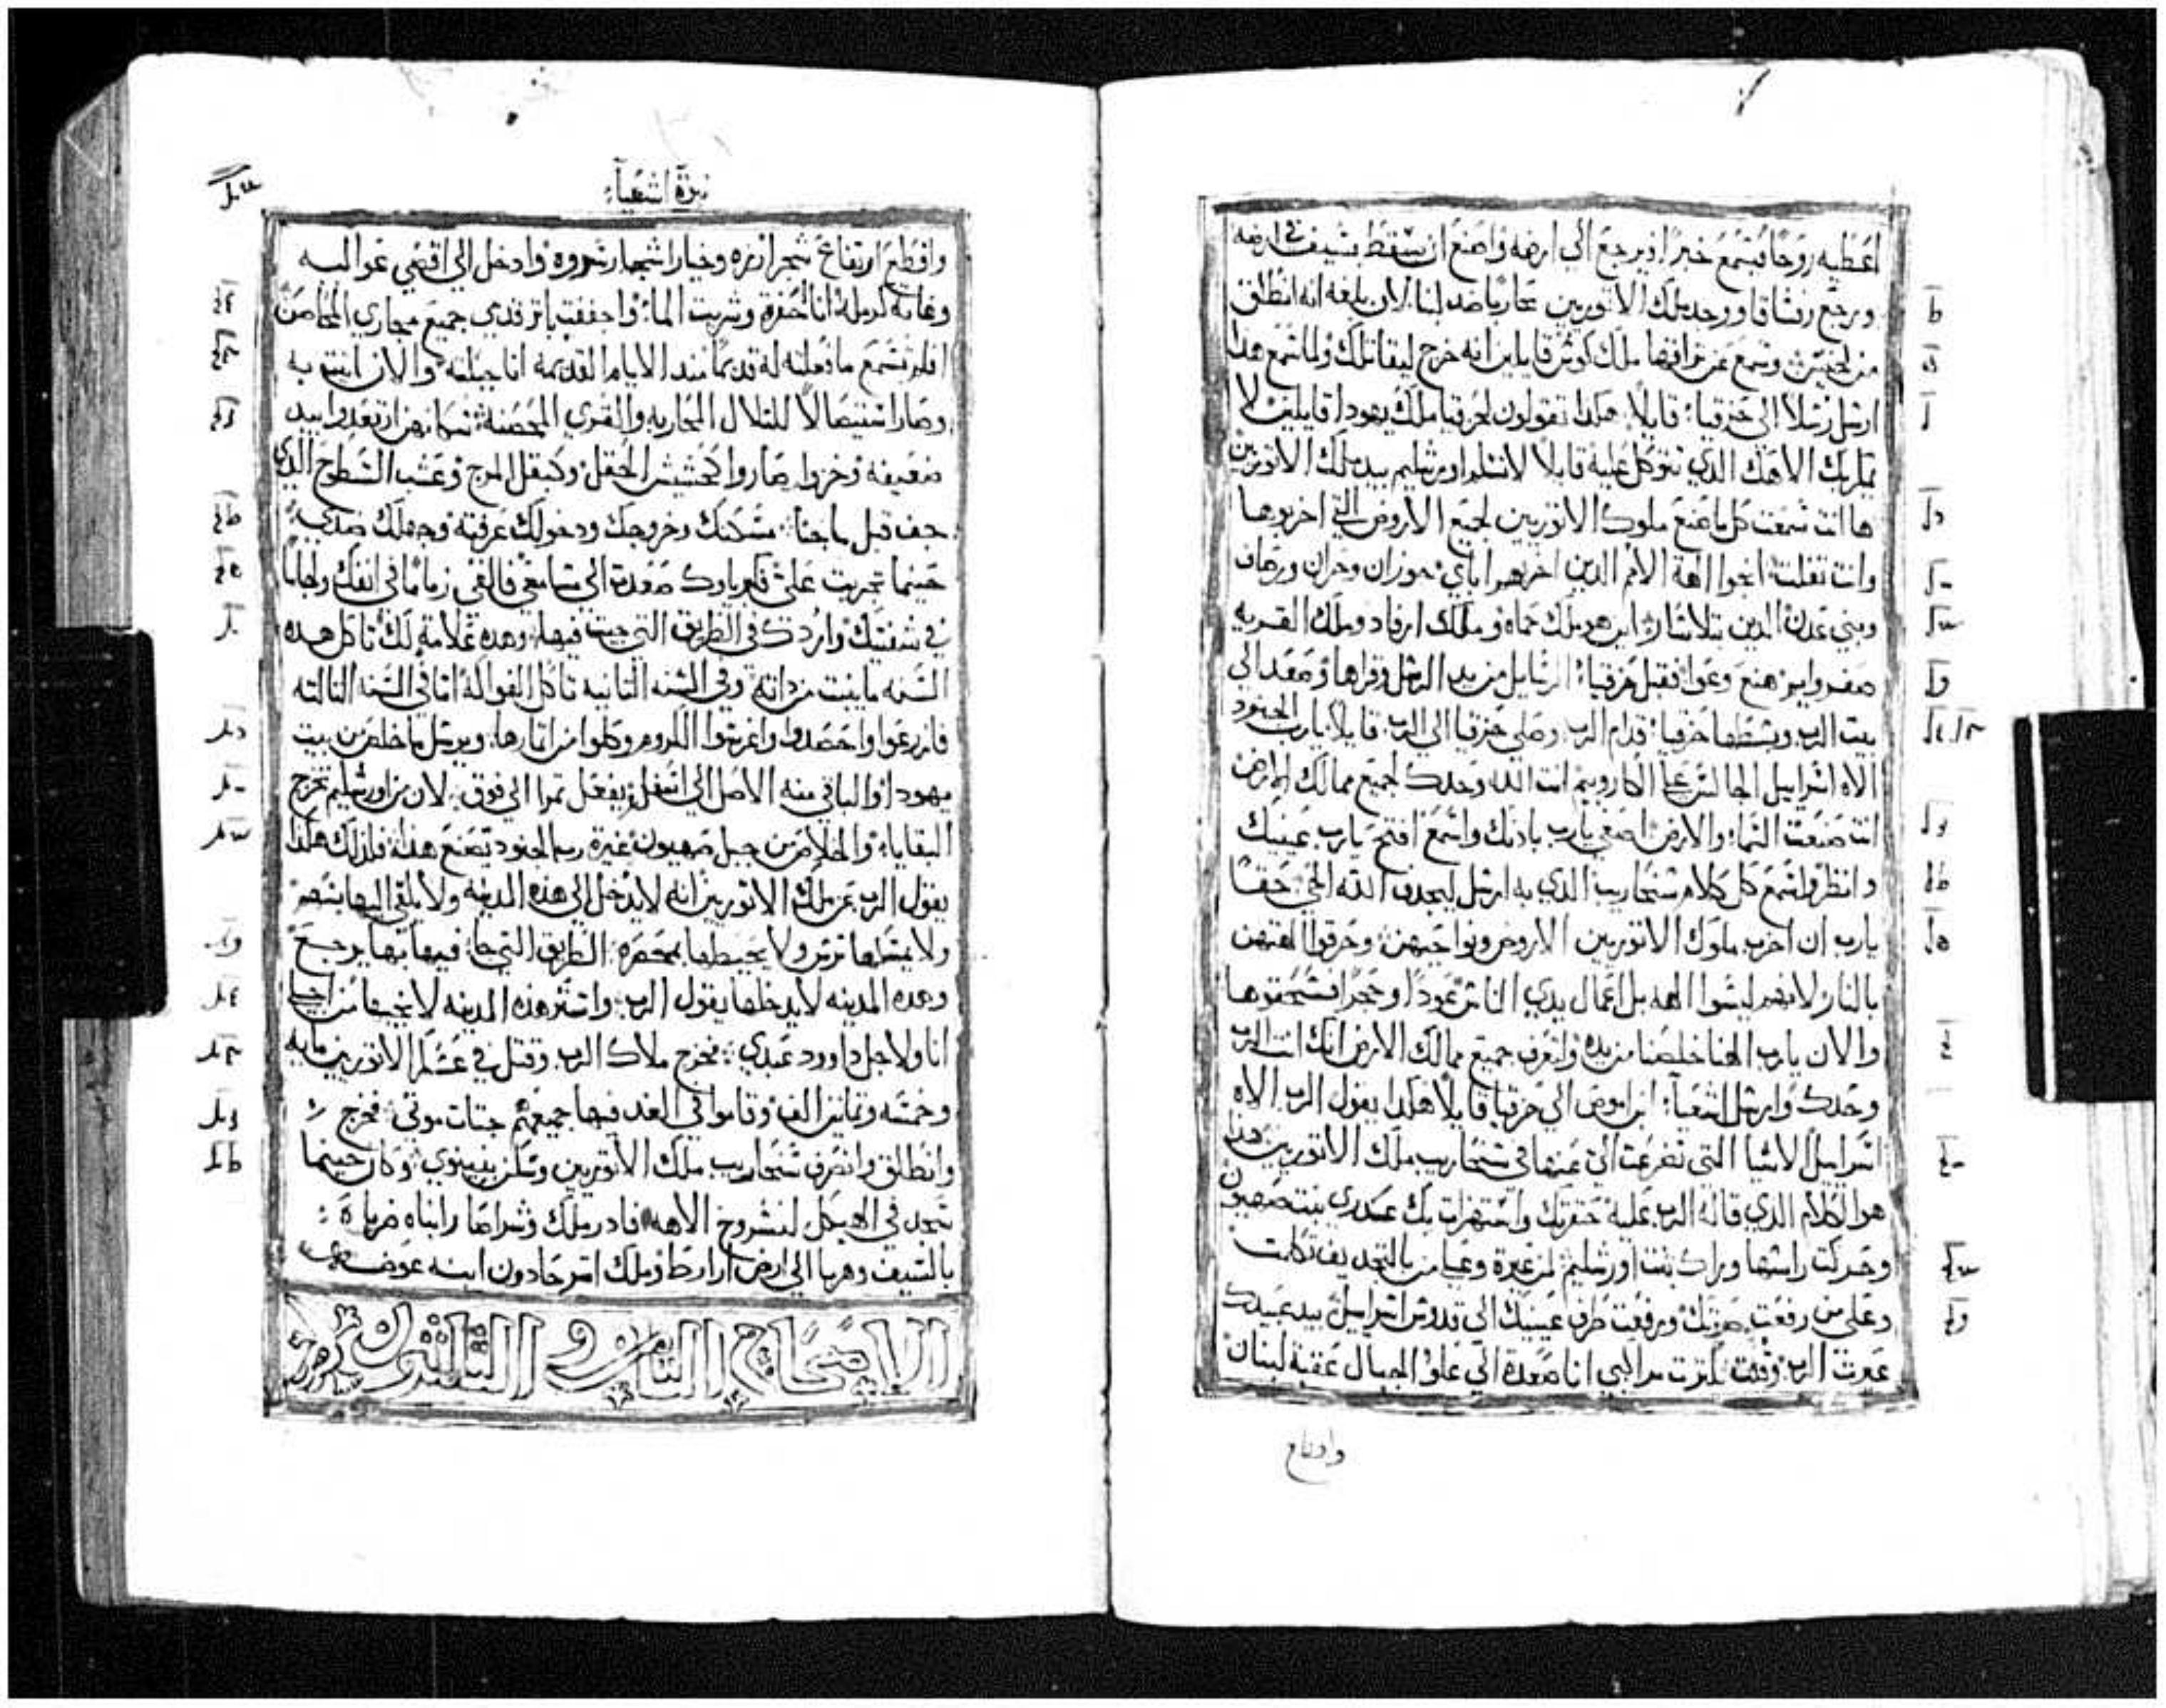 اعطيه روحا فيسمع خبرا ويرجع الي ارضه واصنع ان يسقط بسيف في ارضه
ورجع ربشاقا ووجد ملك الاتوريين محاربا ضد لبنا لان بلغه انه انطلق
من لخيش وسمع عن تراقها ملك كوش قايلين انه خرج ليقاتلك ولما سمع هذا
ارسل رسلا الي حزقيا قايلا هكذا تقولون لحزقيا ملك يهودا قايلين لا
يماريك الاهك الذي تتوكل عليه قايلا لا تسلم اورشليم بيد ملك الاتوريين
ها انت سمعت كل ما صنع ملوك الاتوريين لجميع الاروض التي اخربوها
وانت تفلت انجوا الهة الامم الذين اخربهم اباي جوزان وحران ورصاف
وبني عدن الذين بتلاشار اين هو ملك حماه وملك ارفاد وملك القريه
صفروايم هنع وعوا فقبل حزقيا الرسايل من يد الرسل وقراها وصعد الي
بيت الرب وبسطها حزقيا قدام الرب وصلي حزقيا الي الرب قايلا يا رب الجنود
الاه اسراييل الجالس علي الكاروبيم انت الله وحدك لجميع ممالك الارض
انت صنعت السما والارض اصغي يا رب باذنك واسمع افتح يا رب عينيك
وانظر واسمع كل كلام سنحاريب الذي به ارسل ليجدف الله الحي حقا
يا رب ان اخرب ملوك الاتوريين الاروض ونواحيهن وحرقوا الهتهن
بالنار لانهم ليسوا الهه بل اعمال يدي الناس عودا وحجرا فسحقوها
والان يا رب الهنا خلصنا من يده ولتعرف جميع ممالك الارض انك انت الرب
وحدك وارسل اشعيا ابن اموص الي حزقيا قايلا هكذا يقول الرب الاه
اسراييل الاشيا التي تضرعت الي عنها في سنحاريب ملك الاتوريين هذا
هو الكلام الذي قاله الرب عليه حقرتك واستهزات بك عذري بنت صهيون
وحركت راسها وراك بنت اورشليم لمن عيرت وعلي من بالتجديف تكلمت
وعلي من رفعت صوتك ورفعت طرف عينيك الي قدوس اسراييل بيد عبيدك
عيرت الرب وقلت بكثرت مراكبي انا صعدت الي علو الجبال عقبة لبنان
واقطع
نبوة اشعياء
واقطع ارتفاع شجر ارزه وخيار اشجار شروه وادخل الي اقصي عواليه
وغابة كرمله انا حفرت وشربت الما واجففت باثر قدمي جميع مجاري المخاض
افلم تسمع ما فعلته له قديما منذ الايام القديمه انا جبلته والان اتيت به
وصار استيصالا للتلال المحاربه والقري المحصنة سكانهن ارتعدوا بيد
ضعيفه وخزوا صاروا كحشيش الحقل وكبقل المرج وعشب السطوح الذي
جف قبل ما جنا مسكنك وخروجك ودخولك عرفته وجهلك ضدي
حينما تجريت علي فكبرياوك صعدت الي مسامعي فالقي زماما في انفك ولجاما
في شفتيك واردك في الطريق التي جيت فيها وهذه علامة لك تاكل هذه
السنه ما ينبت من ذاته وفي السنه الثانيه تاكل الفواكه اما في السنه الثالثه
فازرعوا واحصدوا واغرسوا الكروم وكلوا من اثمارها ويرسل ما خلص من بيت
يهودا والباقي منه الاصل الي اسفل ويفعل ثمرا الي فوق لان من اورشليم تخرج
البقايا والخلاص من جبل صهيون غيرة رب الجنود تصنع هذا فلذلك هكذا
يقول الرب عن ملك الاتوريين انه لا يدخل الي هذه المدينه ولا يلقي اليها سهم
ولا يمسكها ترس ولا يحيطها بمحصره الطريق التي جا فيها بها يرجع
وهذه المدينه لا يدخلها يقول الرب واستر هذه المدينه لانجيها من اجلي
انا ولاجل داوود عبدي فخرج ملاك الرب وقتل في عسكر الاتوريين مايه
وخمسه وثمانين الف وقاموا في الغد فهما جميعهم جثات موتي فخرج
وانطلق وانصرف سنحاريب ملك الاتوريين وسكن بنينوي وكان حينما
سجد في الهيكل لنسروخ الاهه فادرملك وشراصار ابناه ضرباه
بالسيف وهربا الي ارض اراراط وملك اسرحادون ابنه عوضه
الاصحاح الثامن والثلاثون